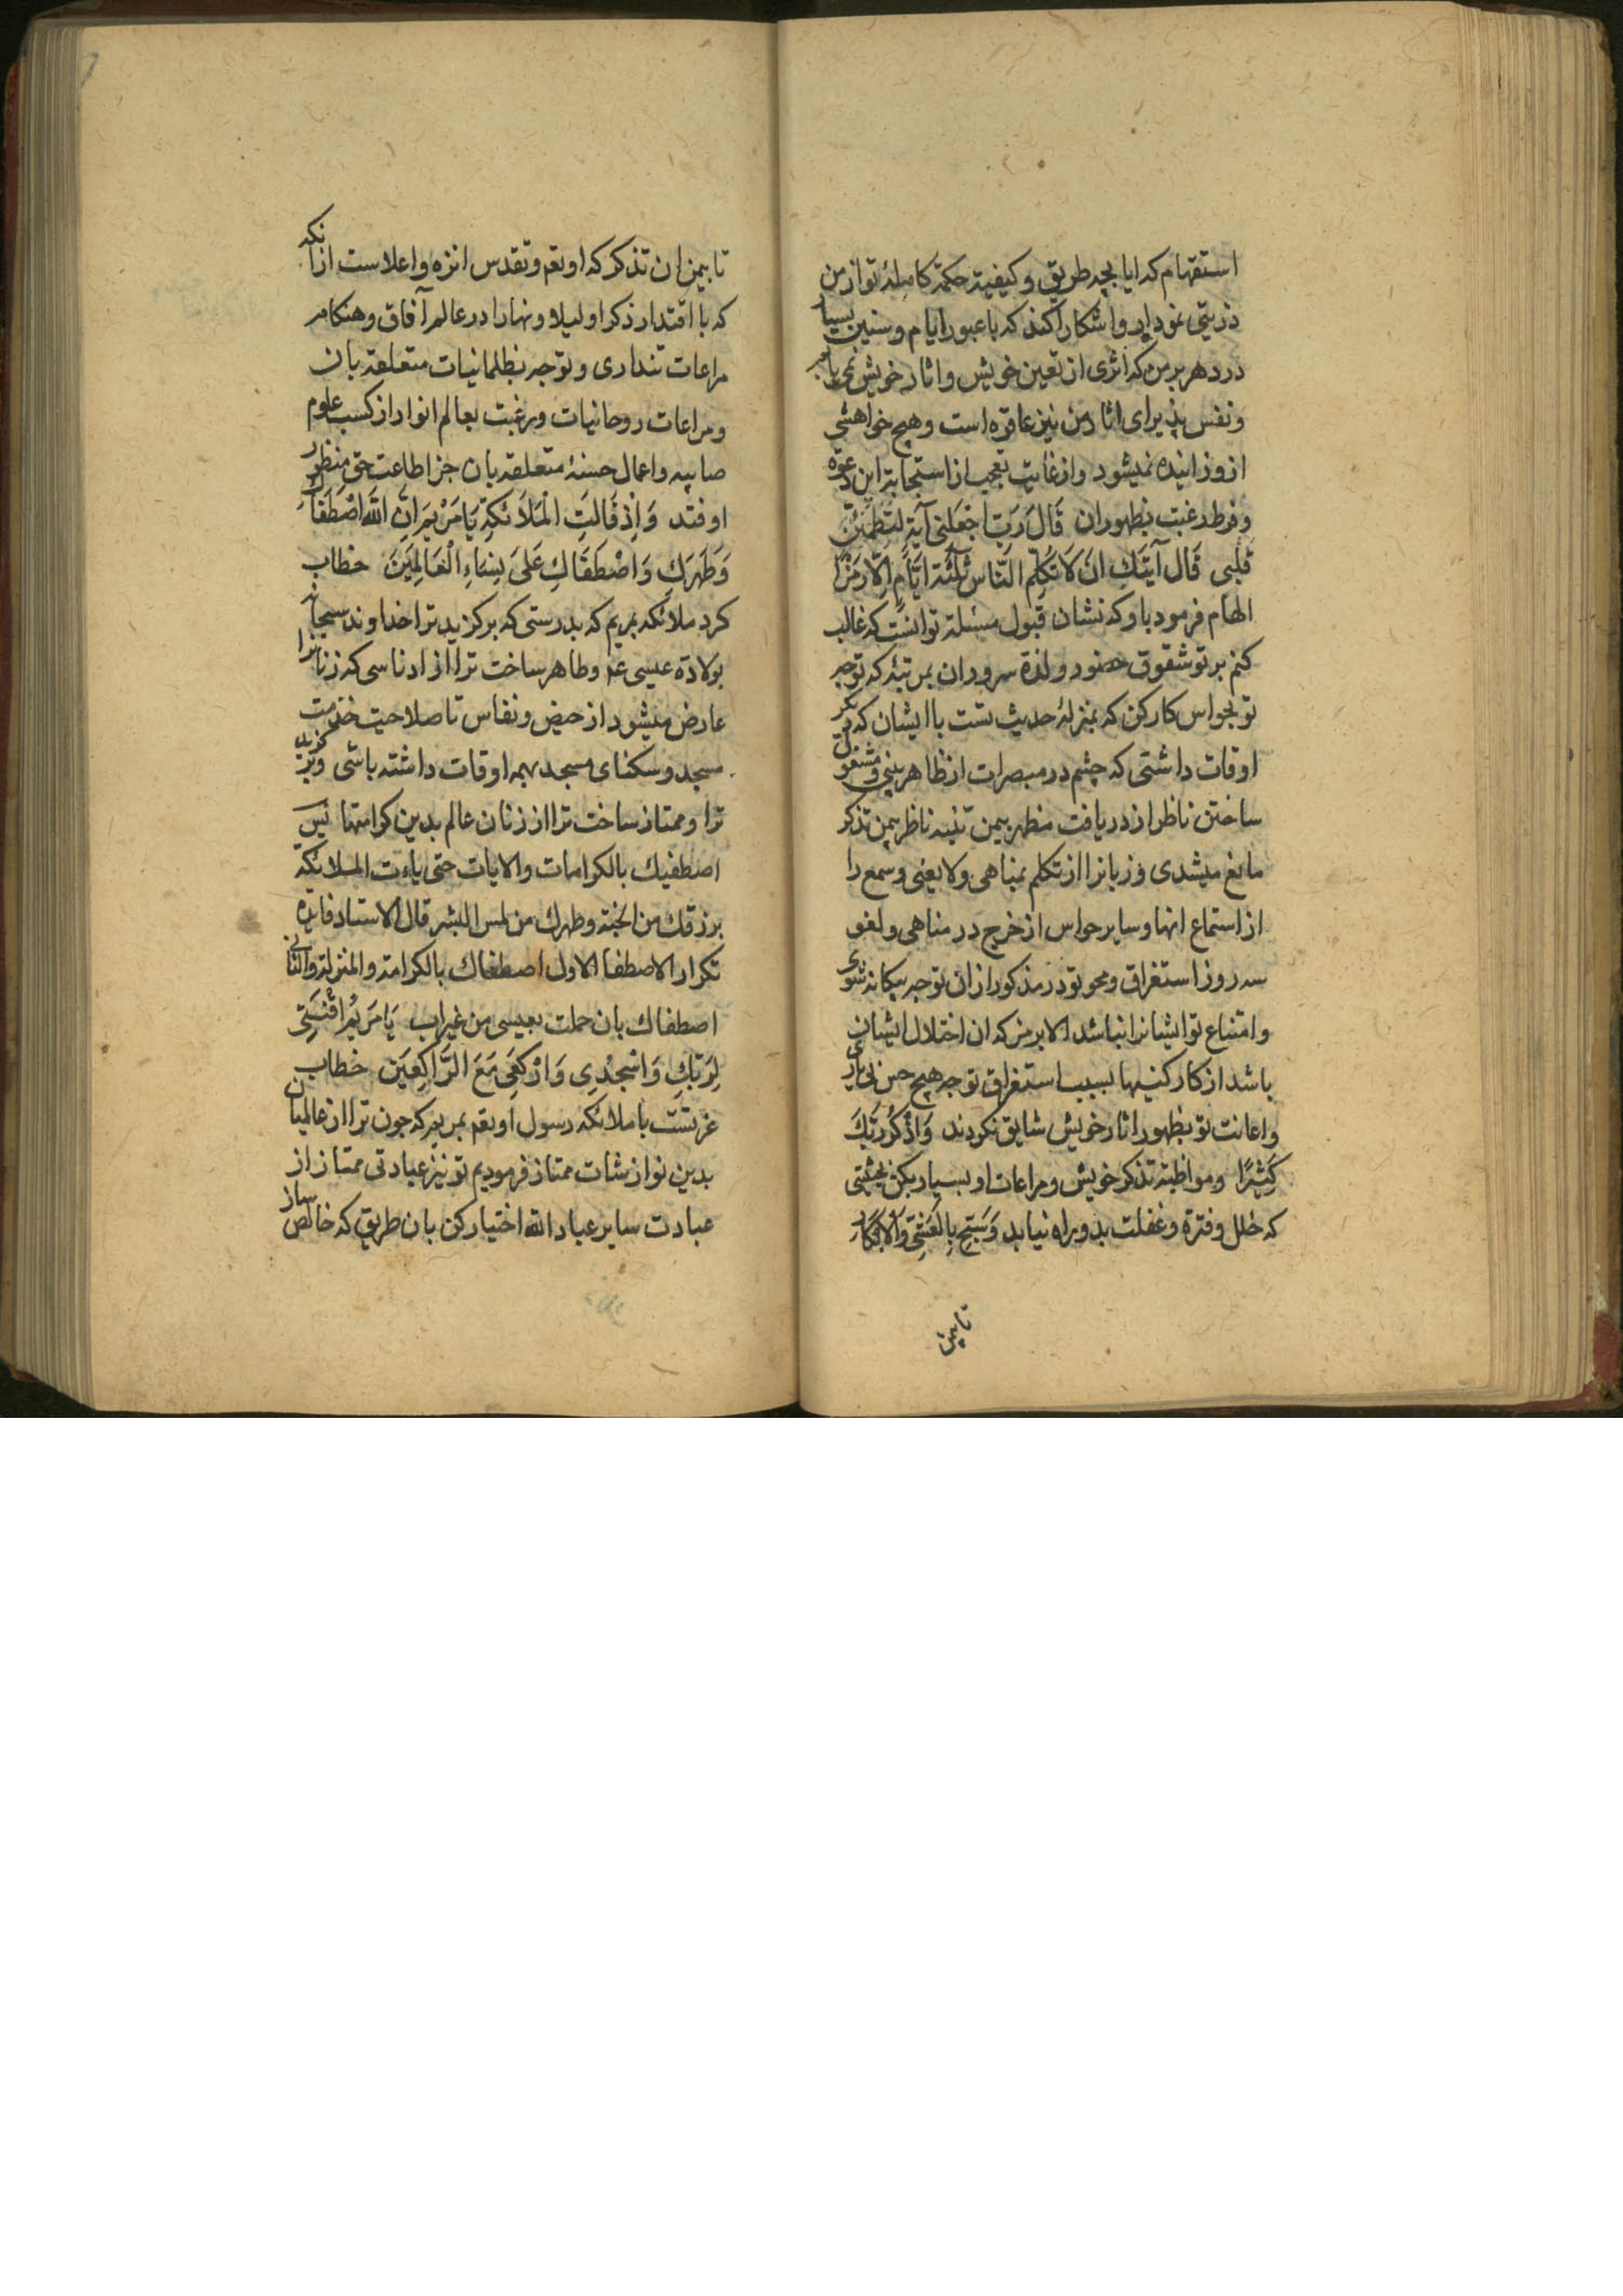 استفهام که ایا بچه طریق و کیفیة حکمة کاملهٔ تو از من
ذریتی نمودار و اشکارا کند که با عبور ایام و سنین بسیار
در دهر بر من که اثری از تعین خویش و اثار خویش نمی یابم
و نفس پذیرای اثار من نیز عاقره است و هیچ خواهشی
از و زاینده نمیشود و از غایت تعجب از استجابة این دعوة
و فرط رغبت بظهور ان قَالَ رَبِّ اجْعَلْ لِی آیَةً لتطمئن
قلبی قَالَ آیَتُكَ اَنْ لَا تُکَلِّمَ النَّاسَ ثَلٰثَةَ اَیَّامٍ اِلَّا رَمْزًا
الهام فرمود باو که نشان قبول مسئلة تو انست که غالب
کنم بر تو شقوق حضور و لذة سرور ان بمرتبهٔ که توجه
تو بحواس کارکن که بمنزلهٔ حدیث تست با ایشان که دیگر
اوقات داشتی که چشم در مبصرات از ظاهر بینی و مشغول
ساختن ناظر از دریافت مظهر بیمن تنبیه ناظر بیمن تذکر
مانع میشدی و زبانرا از تکلم بمناهی و لا یعنی و سمع را
از استماع انها و سایر حواس از خرج در مناهی و لغو
سه روز استغراق و محو تو در مذکور از ان توجه بیکانه شوی
و امتناع تو ایشانرا نباشد الا برمز که ان اختلال ایشان
باشد از کار کنیها بسبب استغراق توجه هیچ حس بی یاری
و اعانت تو بظهور اثار خویش شایق نکردند وَاذْکُرْ رَبَّكَ
کَثِیْرًا و مواظبة تذکر خویش و مراعات او بسیار بکن بحیثیتی
که خلل و فترة و غفلت بدو راه نیابد وَسَبِّحْ بِالْعَشِیِّ وَالْاِبْکَارِ
تا بیمن
تا بیمن ان تذکر که او تعم و تقدس انزه و اعلاست از انکه
که با اقتدار ذکر او لیلا و نهارا در عالم آفاق و هنکام
مراعات تنداری و توجه بظلمانیات متعلقه بان
و مراعات روحانیات و رغبت بعالم انوار از کسب علوم
صایبه و اعمال حسنهٔ متعلقه بان جز اطاعت حق منظور
او فتد وَاِذْ قَالَتِ الْمَلَائِکَةُ یَا مَرْیَمُ اِنَّ اللّٰهَ اصْطَفَاكِ
وَطَهَّرَكِ وَاصْطَفَاكِ عَلَی نِسَاءِ الْعَالَمِیْنَ خطاب
کرد ملائکه بمریم که بدرستی که برکزید ترا خداوند سبحانه
بولادة عیسی عم و طاهر ساخت ترا از ادناسی که زنانرا
عارض میشود از حیض و نفاس تا صلاحیت خدمت
مسجد و سکنای مسجد بهمه اوقات داشته باشی و کزید
ترا و ممتاز ساخت ترا از زنان عالم بدین کرامتها
اصطفیك بالکرامات و الایات حتی یاءت الملائکة
برزقك من الجنة و طهرك من لمس البشر قال الاستاد فایدة
تکرار الاصطفا الاول اصطفاك بالکرامة و المنزلة و الثانی
اصطفاك بان حملت بعیسی من غیر اب یَا مَرْیَمُ اقْنُتِی
لِرَبِّكِ وَاسْجُدِی وَارْکَعِی مَعَ الرَّاکِعِیْنَ خطاب
عزتست با ملائکه رسول او تعم بمریم که چون ترا از عالمیان
بدین نوازشات ممتاز فرمودیم تو نیز عبادتی ممتاز از
عبادت سایر عباد الله اختیار کن بان طریق که خالص ساز